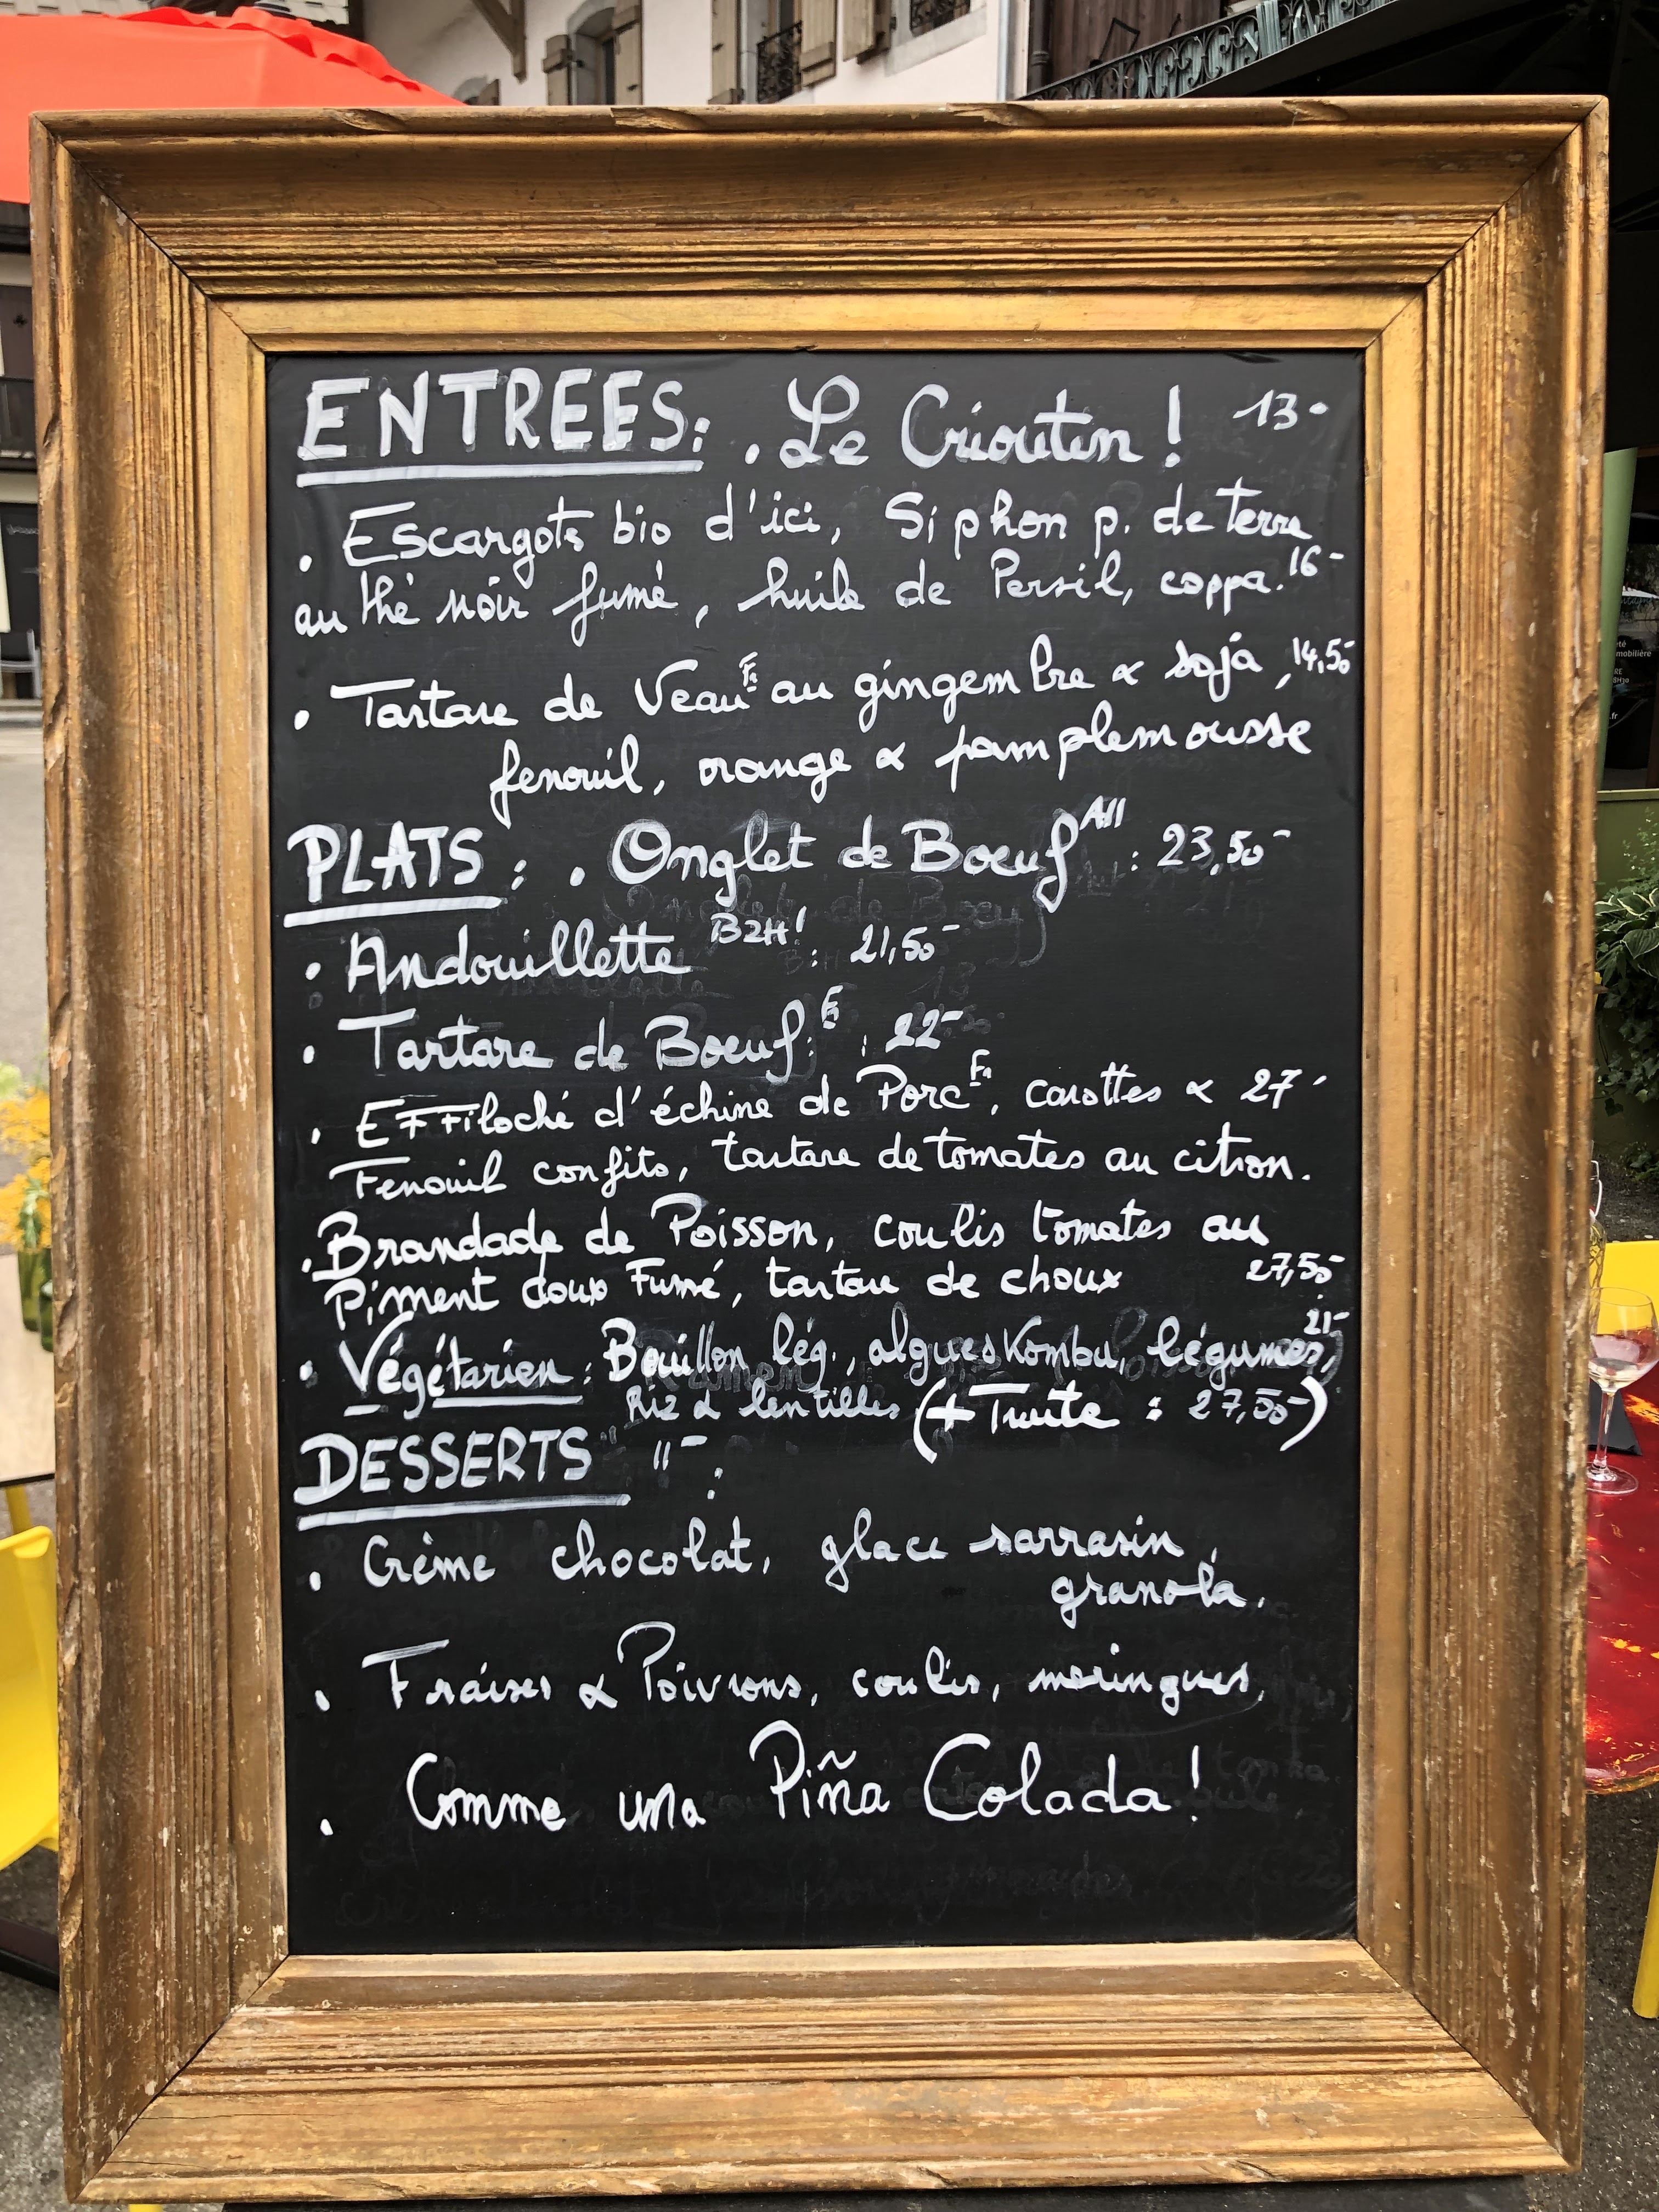 ENTREES: . Le Criouten ! 13-
. Escargots bio d'ici, Siphon p. de terre
au thé noir fumé, huile de Persil, coppa. 16-
. Tartare de Veau au gingembre & soja, 14,50-
fenouil, orange & pamplemousse
PLATS : . Onglet de Boeuf All : 23,50-
. Andouillette B2H! : 21,50-
. Tartare de Boeuf : 22-
. Effiloché d'échine de Porc, carottes & 27-
Fenouil confits, tartare de tomates au citron.
. Brandade de Poisson, coulis tomates au
Piment doux Fumé, tartare de choux 27,50-
. Végétarien : Bouillon lég., algues Kombu, légumes, 21-
Riz & lentilles (+ Truite : 27,50-)
DESSERTS 11- :
. Crème chocolat, glace sarrasin,
granola.
. Fraises & Poivrons, coulis, meringues,
. Comme una Piña Colada !
été
mobilière
RE
.fr